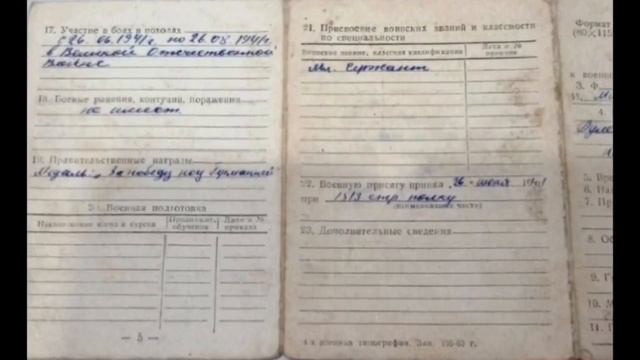 17. Участие в боях и походах
с 26.06.1941г. по 26.08.1941г.
в Великой Отечественной
Войне
18. Боевые ранения, контузии, поражения
не имеет
19. Правительственные награды
Медаль „За победу над Германией
20. Военная подготовка
Наименование сбора и курсов
Продолжит. обучения
Дата и № приказа
— 5 —
21. Присвоение воинских званий и классности
по специальности
Воинское звание, классная квалификация
Дата и № приказа
Мл. Сержант
22. Военную присягу принял 26 июня
при 1313 стр полку
(наименование части)
23. Дополнительные сведения
4-я военная типография. Зак.
Формат
к военно
3. Ф
4.
5.
6. На
7. Пр
8. Об
9. Г
10. М
11.